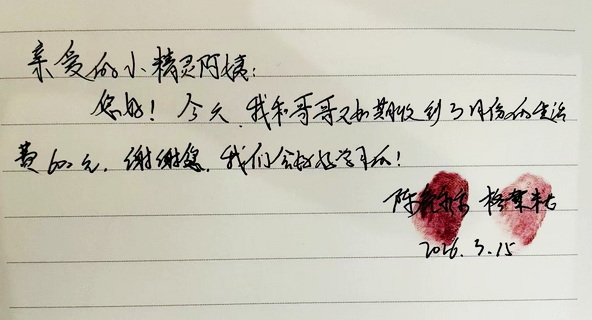 亲爱的小精灵阿姨:
您好! 今天,我和哥哥又如期收到3月份的生活
费600元,谢谢您,我们会好好学习的!
陈 杨
2026.3.15